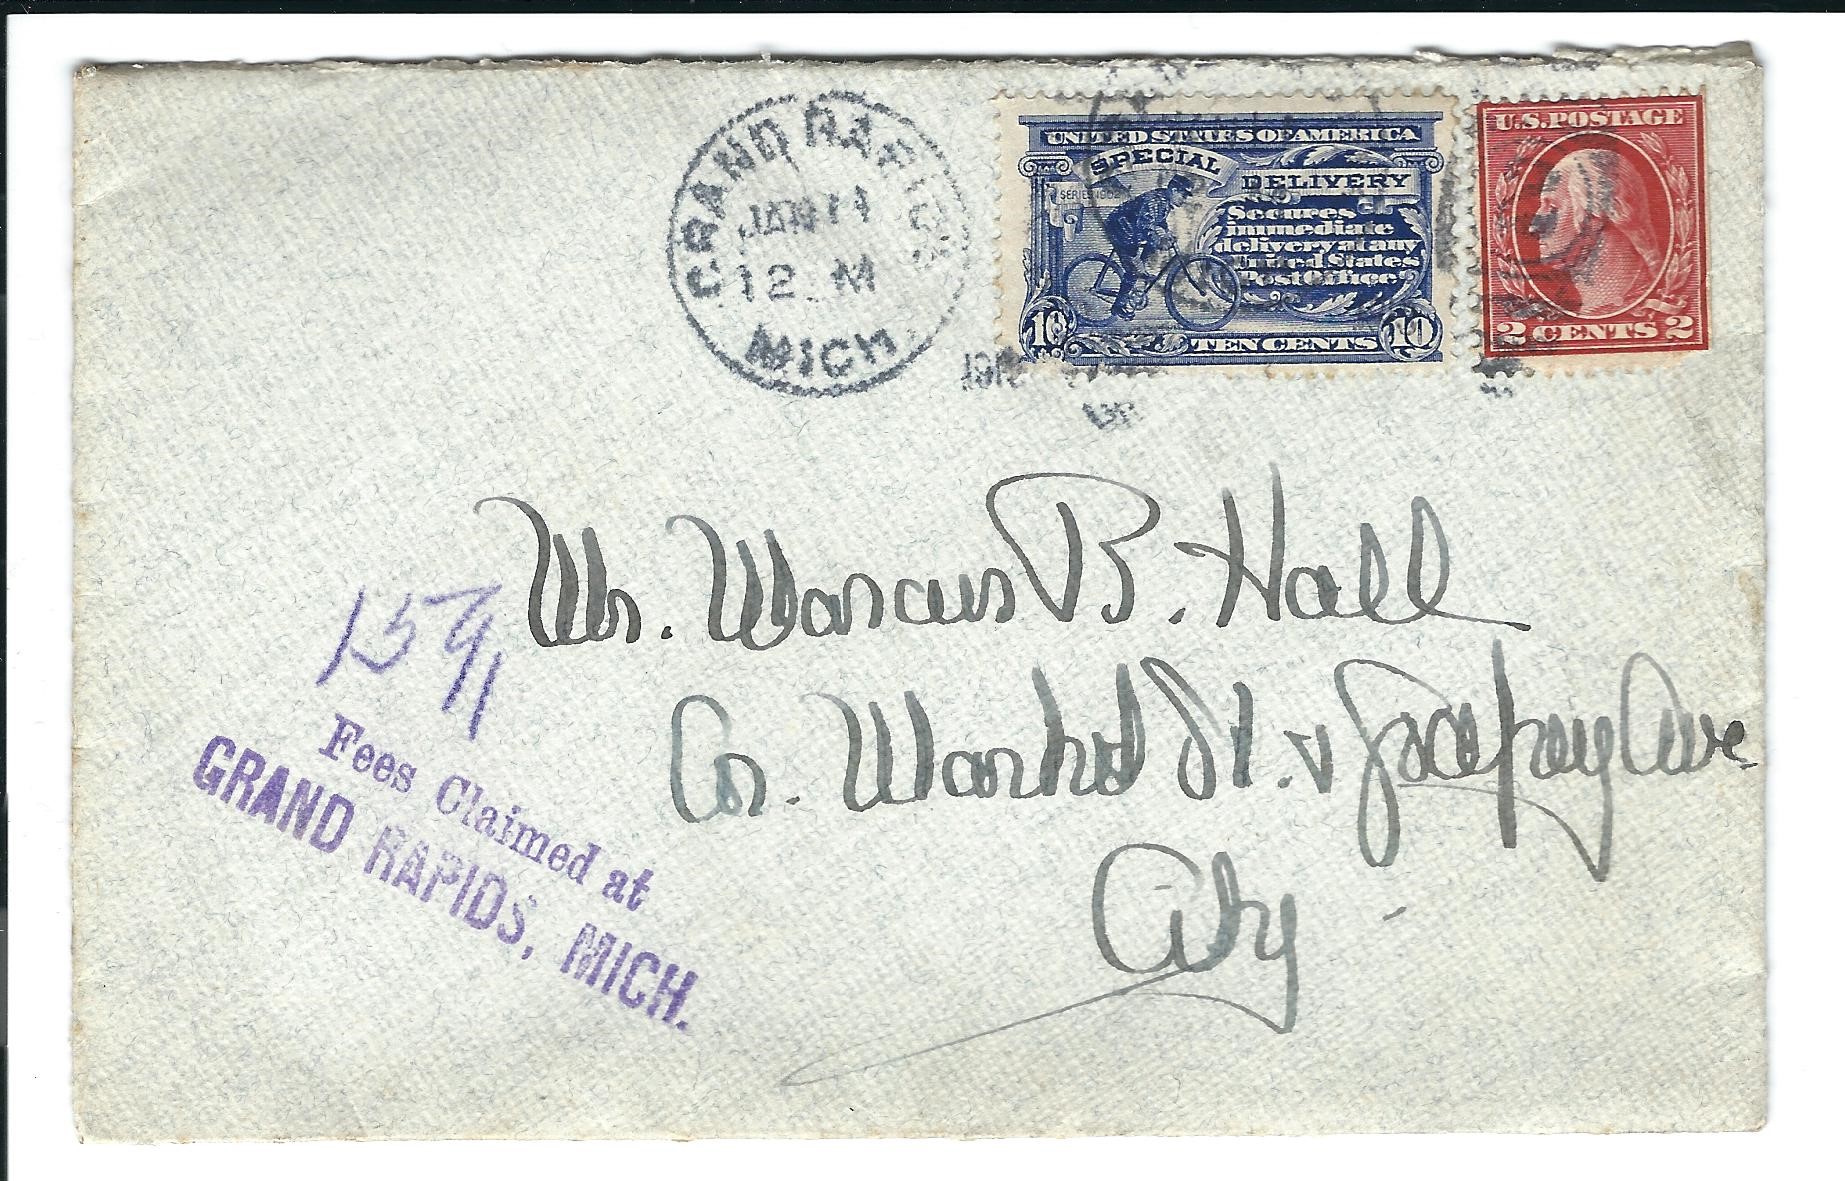 GRAND RAPIDS
JAN 14
12 M
MICH.
191
UNITED STATES OF AMERICA
SPECIAL
DELIVERY
SERIES 1902
Secures
immediate
delivery at any
United States
Post Office
10 TEN CENTS 10
U.S. POSTAGE
2 CENTS 2
Mr. Marcus B. Hall
Cor. Market St. &
Ave
City
Fees Claimed at
GRAND RAPIDS, MICH.